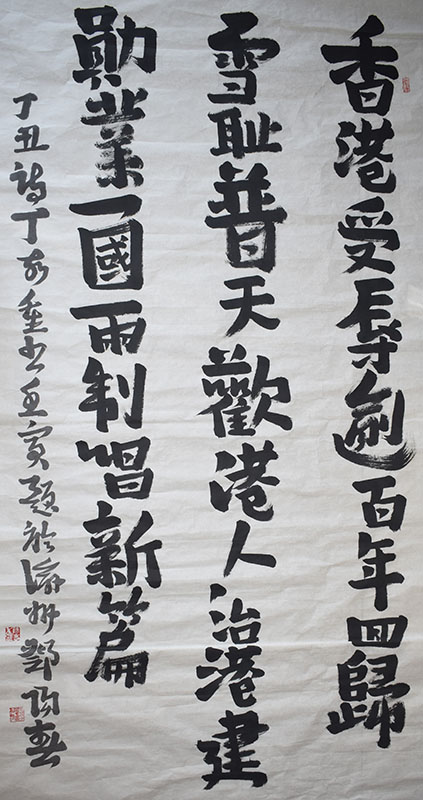 香港受辱逾百年回歸
雪耻普天歡港人治港建
勛業一國兩制唱新篇
丁丑詩丁亥重书壬寅題於渝州鄧